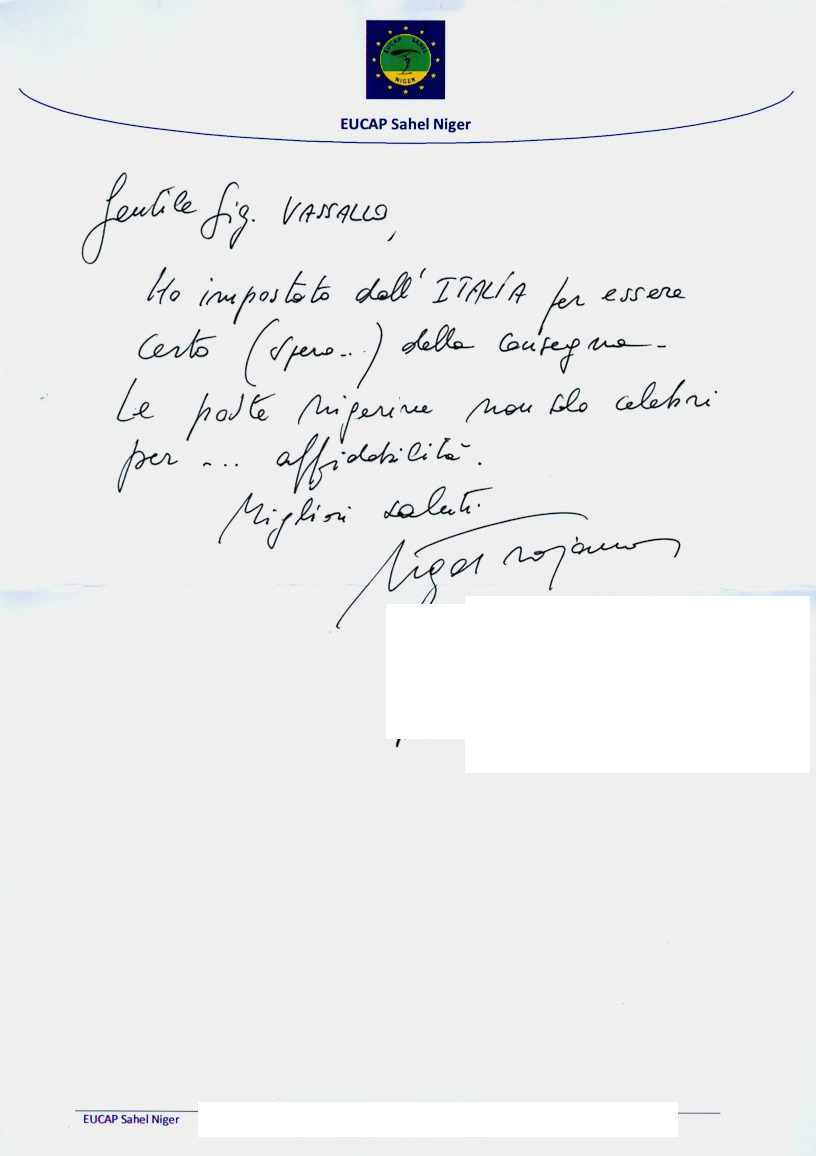 EUCAP SAHEL
NIGER
EUCAP Sahel Niger
Gentile Sig. VASSALLO,
Ho impostato dall' ITALIA per essere
certo (spero...) della consegna -
Le poste nigerine non sono celebri
per ... affidabilità.
Migliori saluti.
EUCAP Sahel Niger